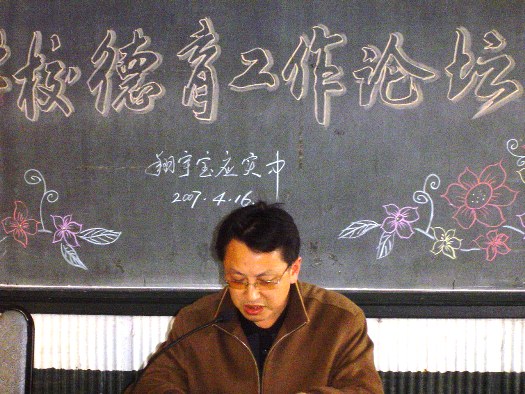 学校德育工作论坛
翔宇宝应实中
2007.4.16.